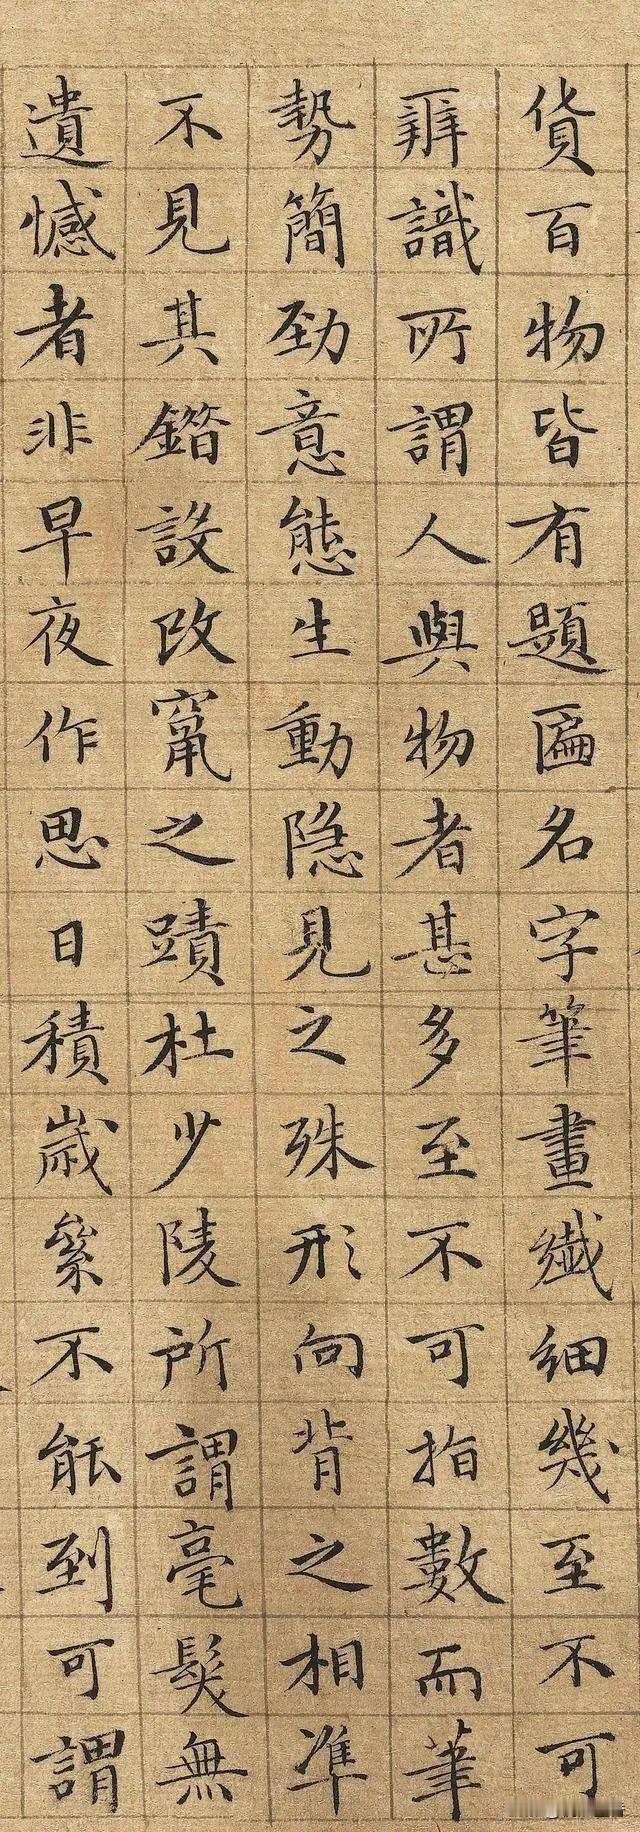 貨百物皆有題匾名字筆畫纖細幾至不可
辨識所謂人與物者甚多至不可指數而筆
勢簡勁意態生動隐見之殊形向背之相準
不見其鍇設改竄之蹟杜少陵所謂毫髮無
遺憾者非早夜作思日積歲絫不能到可謂